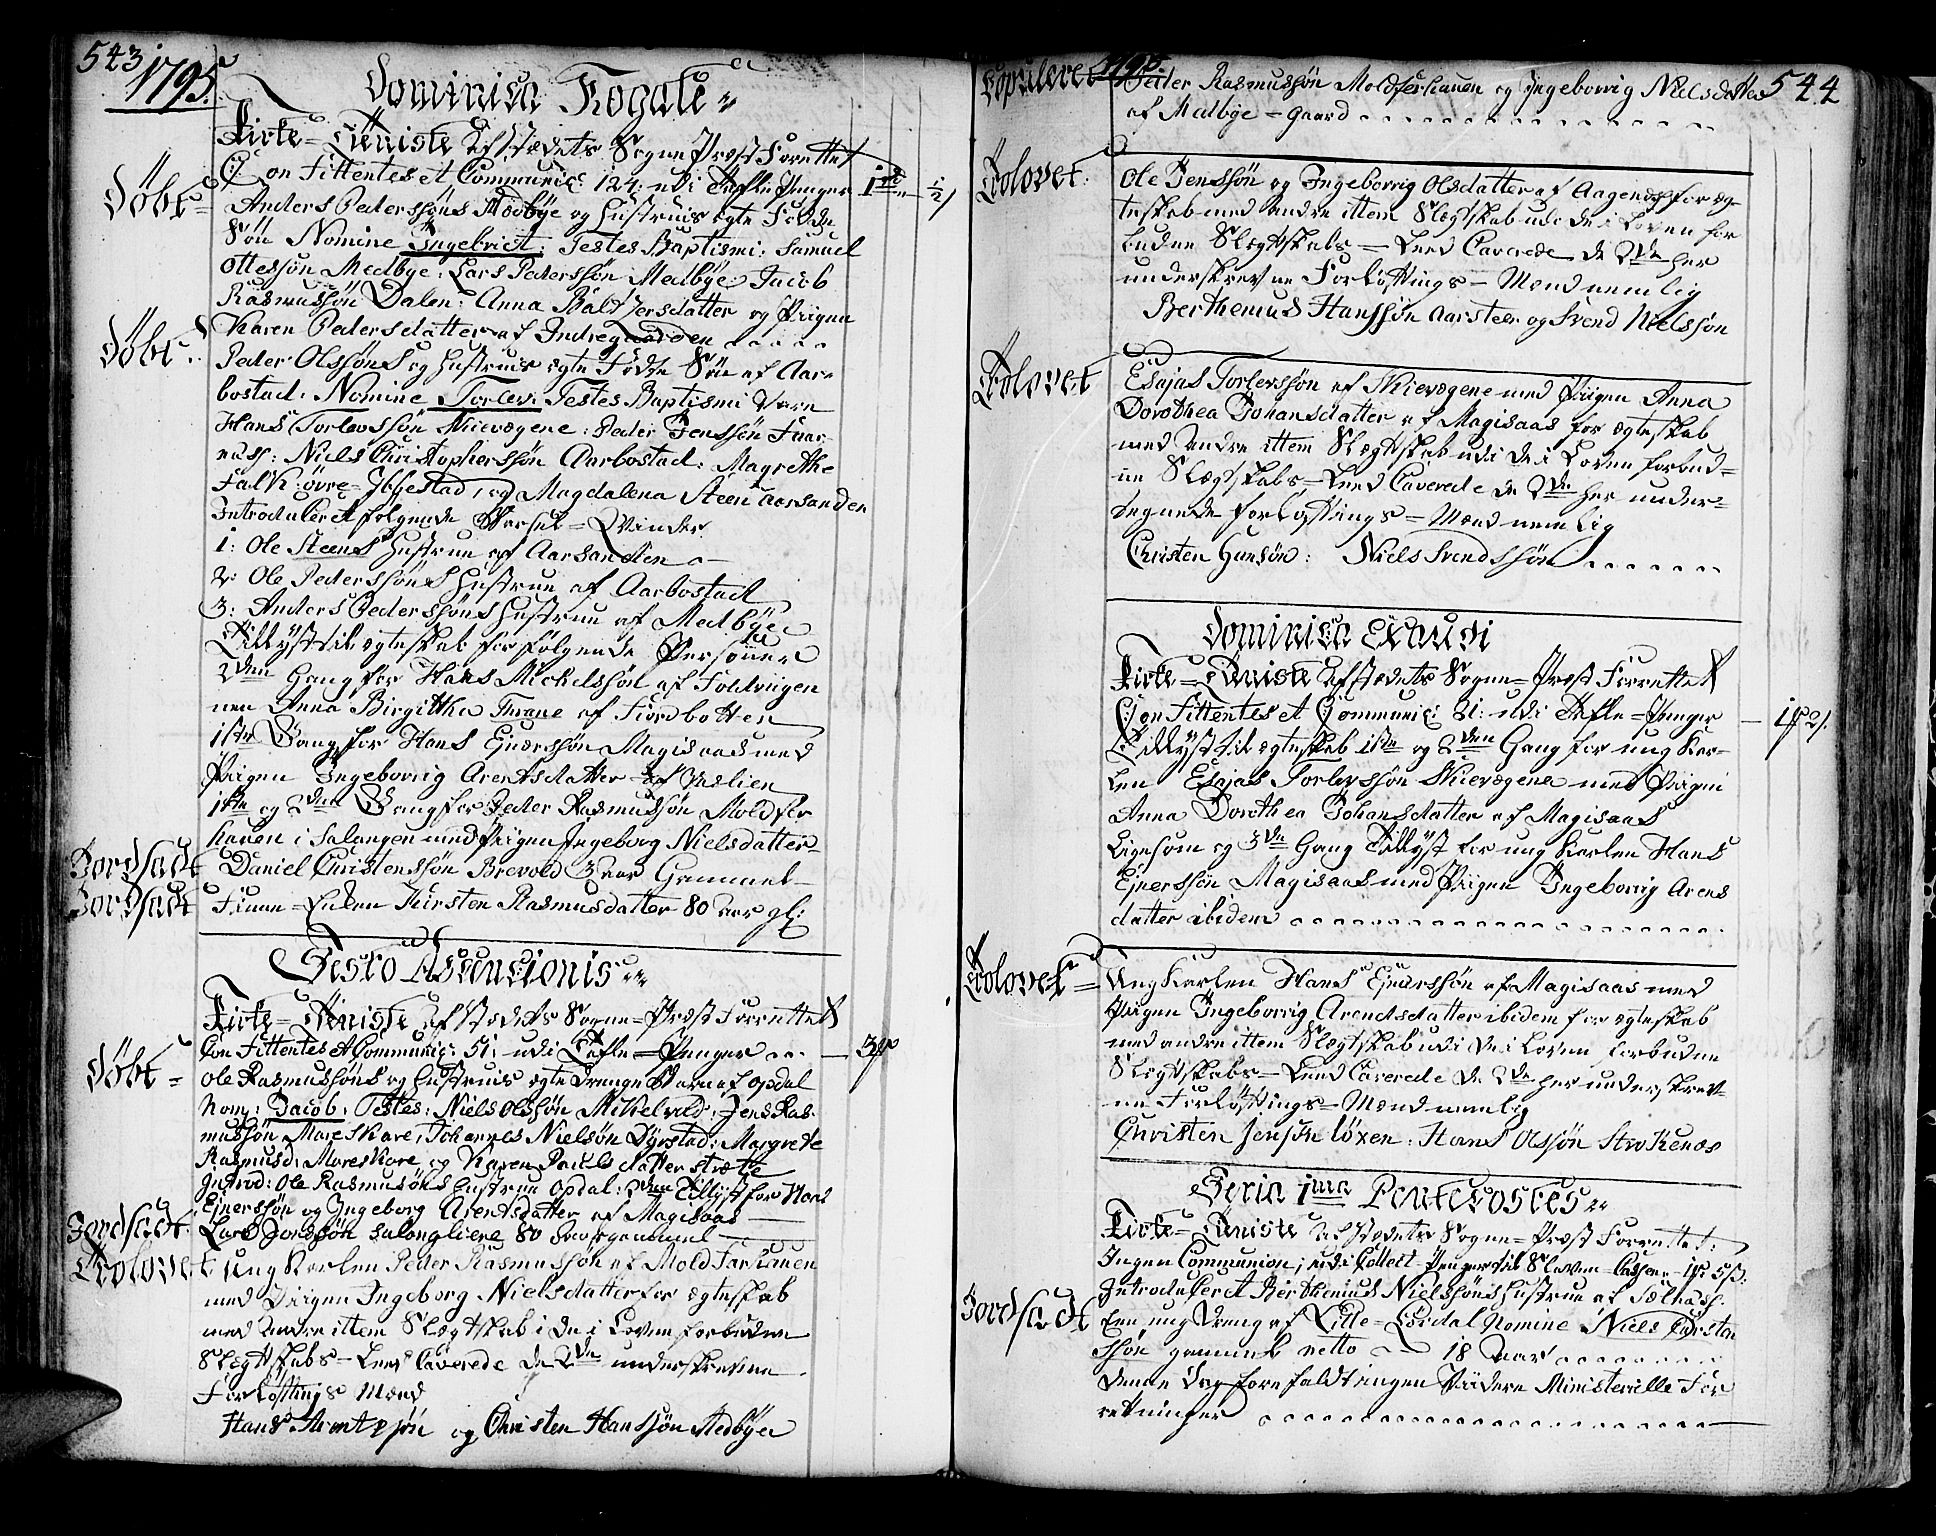 543 1795.
Dominica Rogate
Kirke-Tieniste af Stædets Sogne Præst Forrettet
Confitentes et Communic: 124: udi Tafle Penger
Døbt= Anders Pederssøns Medbye og Hustrues ægte Fødde
Søn Nomine Ingebrict: Testes Baptismi: Samuel
Ottessøn Medbye: Lars Pederssøn Medbye: Jacob
Rasmussøn Dalen: Anna Baltzersdatter og Piigen
Karen Pedersdatter af Indregaarden
Døbt: Peder Olssøns og Hustrues ægte Fødde Søn af Aar-
bostad: Nomine Torlev: Testes Baptismi Vare
Hans Torlevssøn Skievægene: Peder Jenssøn
Niels Christopherssøn Aarbostad: Magrethe
Falk: øvre-Ibbestad, og Magdalena Steen Aarsanden
Introduceret følgende Barsel-Qvinder
1: Ole Steens Hustrue af Aarsanden
2: Ole Pederssøns Hustrue af Aarbostad
3: Anders Pederssøns Hustrue af Medbye
Tillyst til ægteskab for følgende Personer
2den Gang for Hans Mickelssøn af Foldviigen
Anna Birgitha Thrane af Fiordbotten
1ste Gang for Hans Ejnerssøn Magisaas med
Piigen Ingeborrig Arentsdatter af
1ste og 2den Gang for Peder Rasmussøn Moldfer
haven i Salangen med Piigen Ingeborg Nielsdatter
Jordfæstet Daniel Christenssøn Brevold 3 aar Gammel
Jordfæstet Finne-Enken Kirsten Rasmusdatter 80 aar gl:
Festo Ascensionis
Kirke-Tieniste af Stædets Sogne-Præst Forrettet
Confitentes et Communic: 51: udi Tafle-Penger
Døbt= Ole Rasmussøns og Hustrues ægte Drenge Barn af Opdal
Nom: Jacob: Testes: Niels Olssøn Mikelvold: Jens Ras-
mussøn Mareskare, Johannes Nielsøn Dyrstad: Margrete
Rasmusd: Moreskare og Karen Paulsdatter Stræte
Introd: Ole Rasmusøns Hustrue Opdal: 2den Tillyst for Hans
Ejnerssøn og Ingeborg Arentsdatter af Magisaas
Jordfæstet: Lars Jonssøn Salongliene 80 Aar gammel
Trolovet Ung Karlen Peder Rasmussøn af Moldfærhauen
med Piigen Ingeborg Nielsdatter for ægteskab
med andre ittem Slægtskab i de i Loven forbudne
Slægtskabs-Leed Caverede de 2de underskrevne
Forlovnings Mænd
Hans Arentssøn og Christen Hanssøn Medbye
1795
544
Copuleret Peder Rasmussøn Moldferhauen og Ingeborrig Nielsdatter
af Medbye-Gaard
Trolovet: Ole Jenssøn og Ingeborrig Olsdatter af Aagenes for æg-
teskab med andre ittem Slægtskab udi de i Loven for
budne Slægtskabs-Leed Caverede de 2de her
underskrevne Forlovnings-Mænd nemlig
Berthemus Hanssøn Aarsteen og Svend Nielssøn
Trolovet Esajas Torlevssøn af Skievægene med Piigen Anna
Dorothea Johansdatter af Magisaas for ægteskab
med andre ittem Slægtskab udi de i Loven forbud-
ne Slægtskabs-Leed Caverede de 2de her under-
tegnede Forlovnings-Mænd nemlig
Christen Hansøn: Niels Svendssøn
Dominica Exaudi
Kirke-Tieniste af Stædets Sogne-Præst Forrettet
Confitentes et Communic: 21: udi Tafle-Penger
Tillyst til ægteskab 1ste og 2den Gang for ung Kar-
len Esajas Torlevssøn Skievægene med Piigen
Anna Dorothea Johansdatter af Magisaas
Ligesom og 3de Gang Tillyst for ung Karlen Hans
Ejnerssøn Magisaas med Piigen Ingeborrig Arens
datter ibidem
Trolovet= Ung Karlen Hans Ejnerssøn af Magisaas med
Piigen Ingeborrig Arendsdatter ibidem for ægteskab
med andre ittem Slægtskab udi de i Loven forbudne
Slægtskabs-Leed Caverede de 2de her underskrev-
ne Forlovnings-Mænd nemlig
Christen Jenssøn Løxen: Hans Olssøn Strokenæs
Feria 1ma Pentecostes
Kirke-Tieniste af Stædets Sogne-Præst Forrettet:
Ingen Communion; udi Collect-Penger til Slaven-Cassen
Introduceret Berthemius Nielssøns Hustrue af
Jordfæstet Een ung Dreng af Lille- Nomine Niels Carsten
ssøn gammel netto 18 Aar
Denne Dag forefaldt ingen Viidere Ministerielle For
retninger